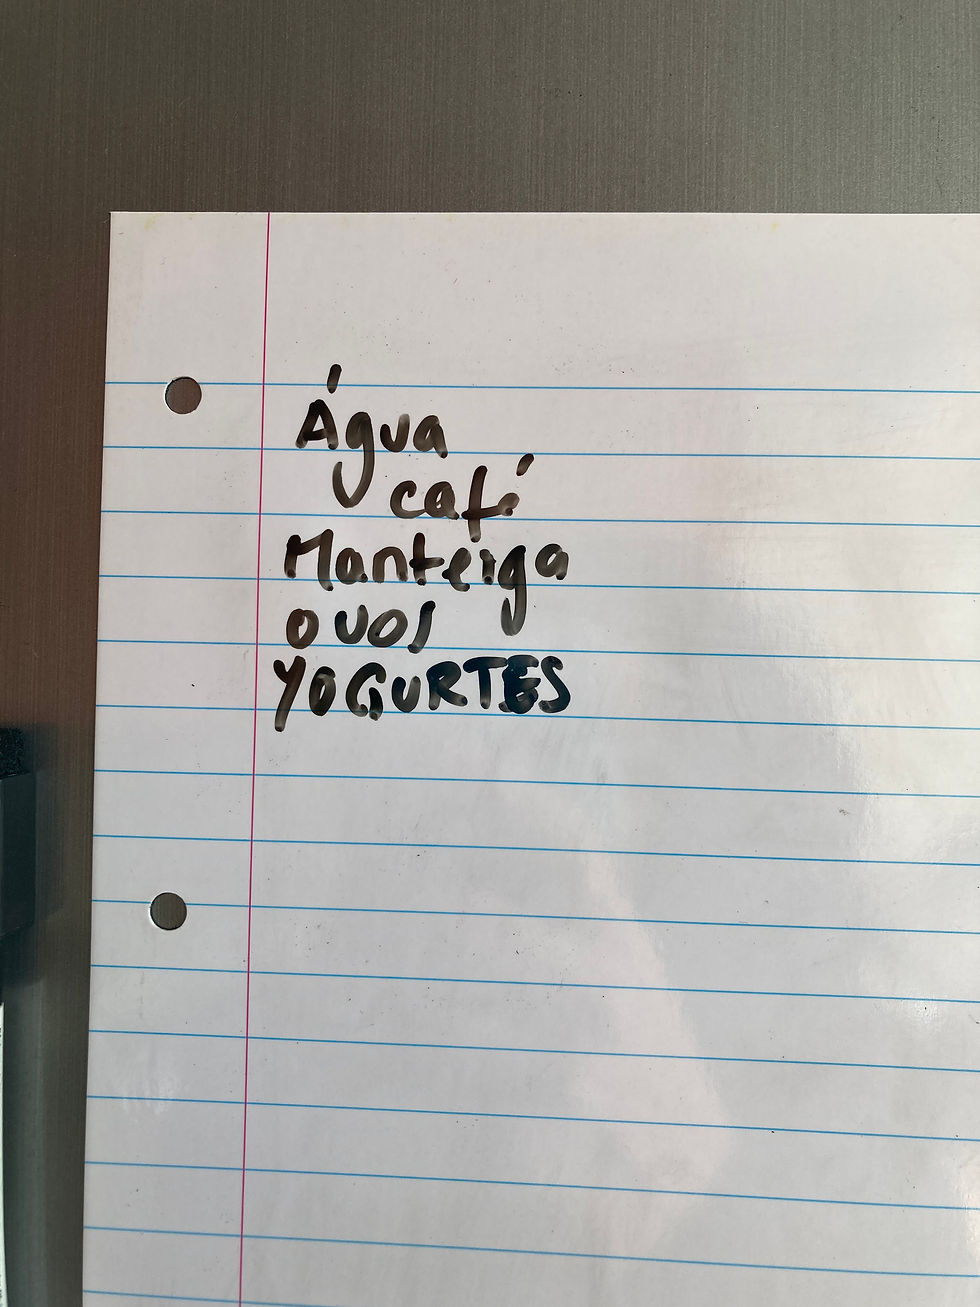 Água
café
Manteiga
ovos
YOGURTES